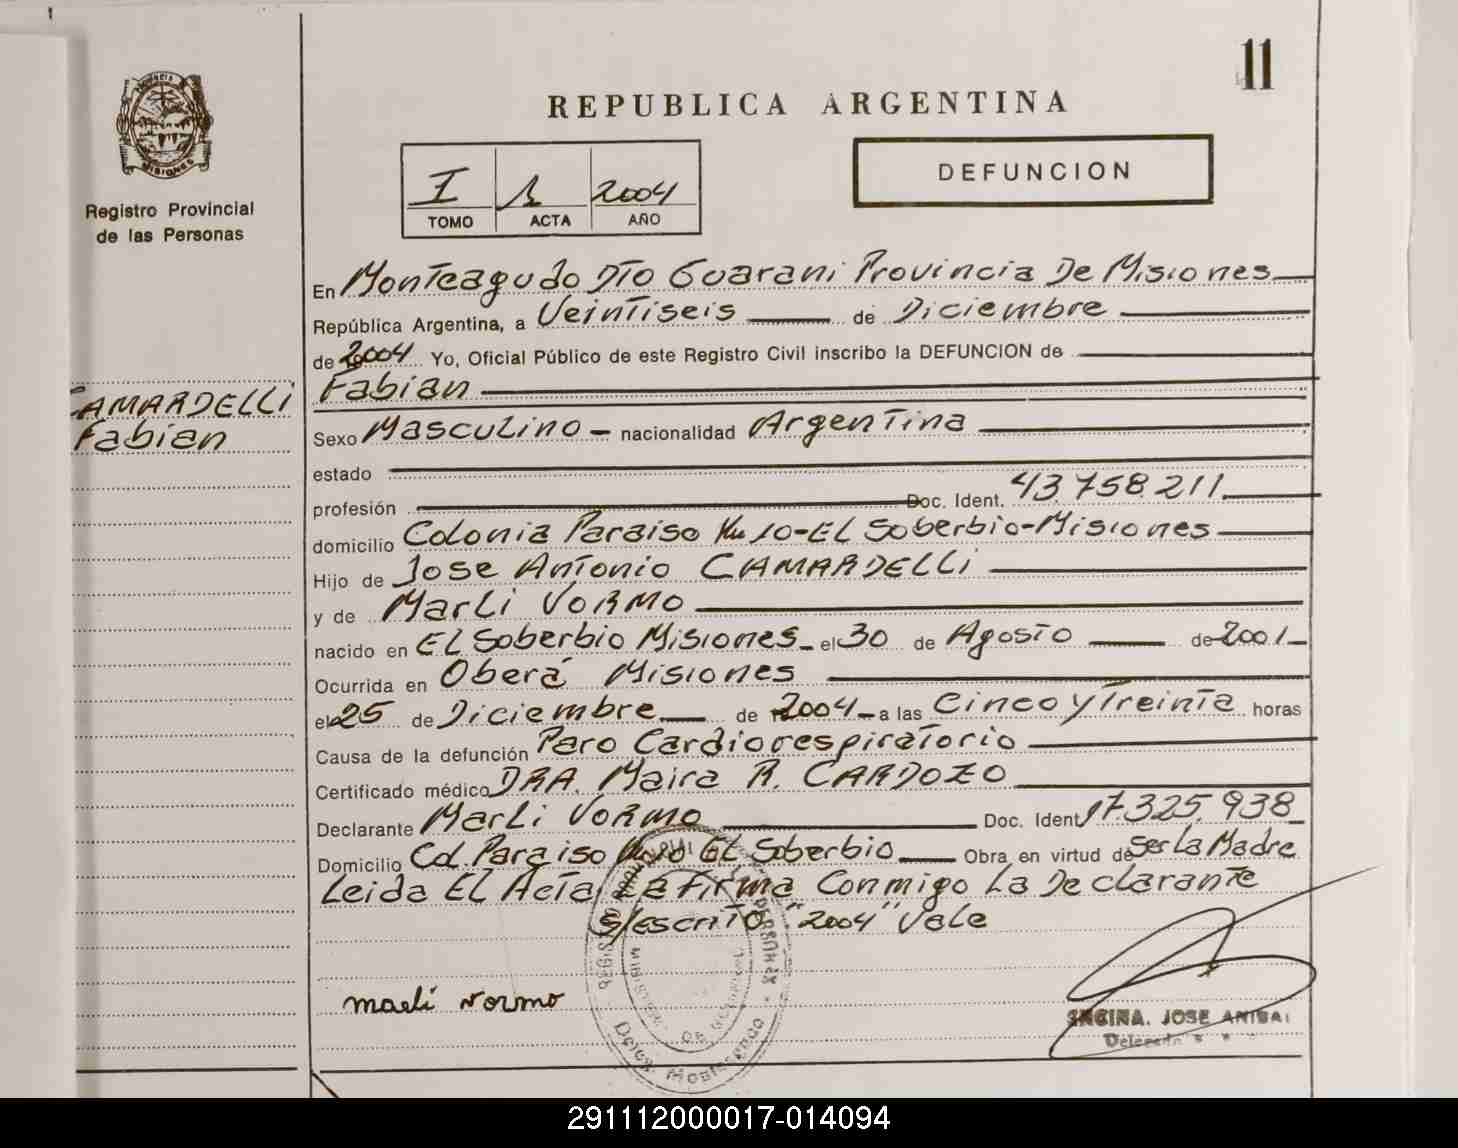 11
REPUBLICA ARGENTINA
MISIONES
Registro Provincial
de las Personas
I 2004
TOMO ACTA AÑO
DEFUNCION
En Monteagudo DTO Guarani Provincia De Misiones
República Argentina, a Veintiseis de Diciembre
de 2004 Yo, Oficial Público de este Registro Civil inscribo la DEFUNCION de
CAMARDELLi
Fabian
Fabian
Sexo Masculino - nacionalidad Argentina
estado
profesión Doc. Ident. 43.758.211
domicilio Colonia Paraiso Km 10-EL Soberbio-Misiones
Hijo de Jose Antonio CAMARDELLi
y de Marli VORMO
nacido en EL Soberbio Misiones el 30 de Agosto de 2001
Ocurrida en Oberá Misiones
el 25 de Diciembre de 2004 a las Cinco y Treinta horas
Causa de la defunción Paro Cardiorespiratorio
Certificado médico DRA. Maira R. CARDOZO
Declarante Marli VORMO Doc. Ident. 17.325.938
Domicilio Col. Paraiso Km 10 EL Soberbio Obra en virtud de Ser La Madre
Leida EL Acta La Firma Conmigo La Declarante
S/escrito "2004" Vale
marli vormo
ENCINA. JOSE ANIBAL
Deleg. Monteagudo
291112000017-014094